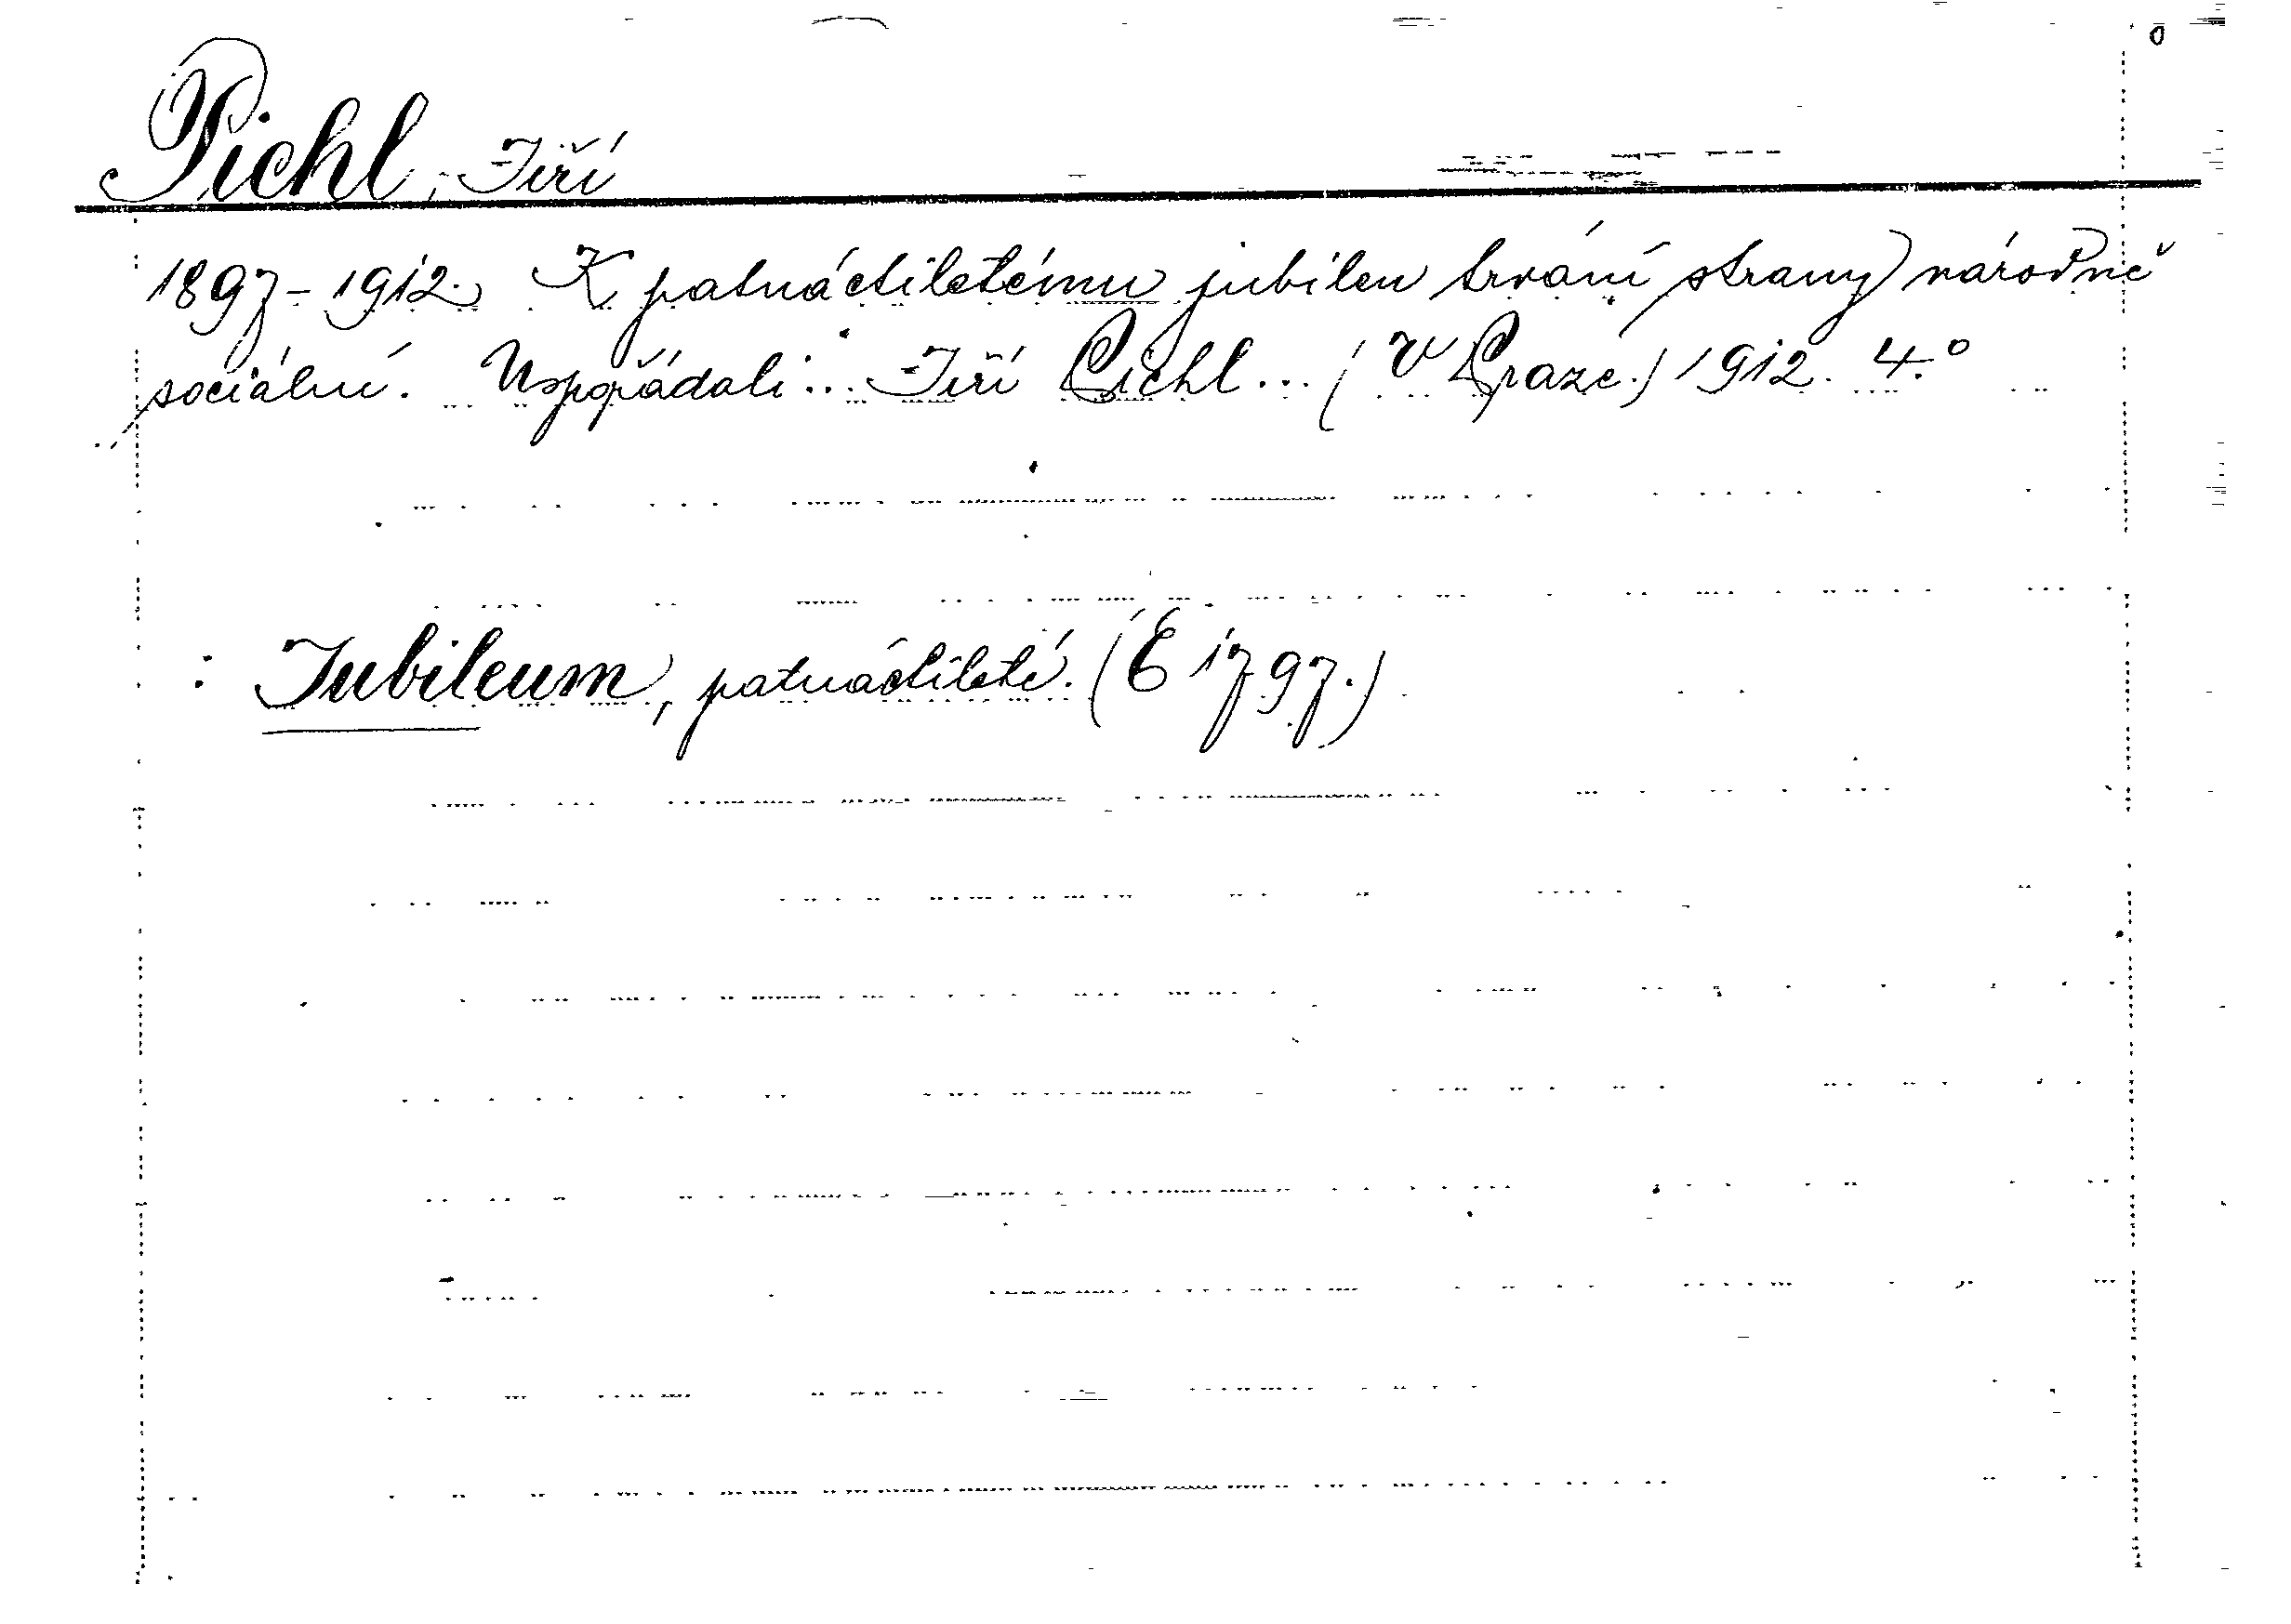 Pichl, Jiří
1897-1912. K patnáctiletému jubileu trvání strany národně
sociální. Uspořádali... Jiří Pichl... (V Praze.) 1912. 4.°
: Jubileum, patnáctileté. (E 1797.)